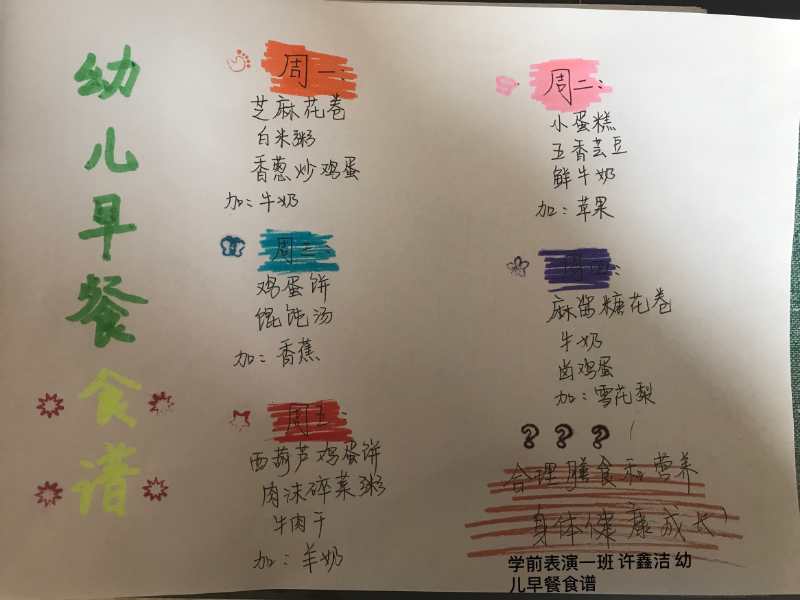 幼儿早餐食谱
周一:
芝麻花卷
白米粥
香葱炒鸡蛋
加:牛奶
周二:
小蛋糕
五香芸豆
鲜牛奶
加:苹果
周三:
鸡蛋饼
馄饨汤
加:香蕉
周四:
麻酱糖花卷
牛奶
卤鸡蛋
加:雪花梨
周五:
西葫芦鸡蛋饼
肉沫碎菜粥
牛肉干
加:羊奶
? ? ?
合理膳食和营养
身体健康成长
学前表演一班 许鑫洁 幼
儿早餐食谱